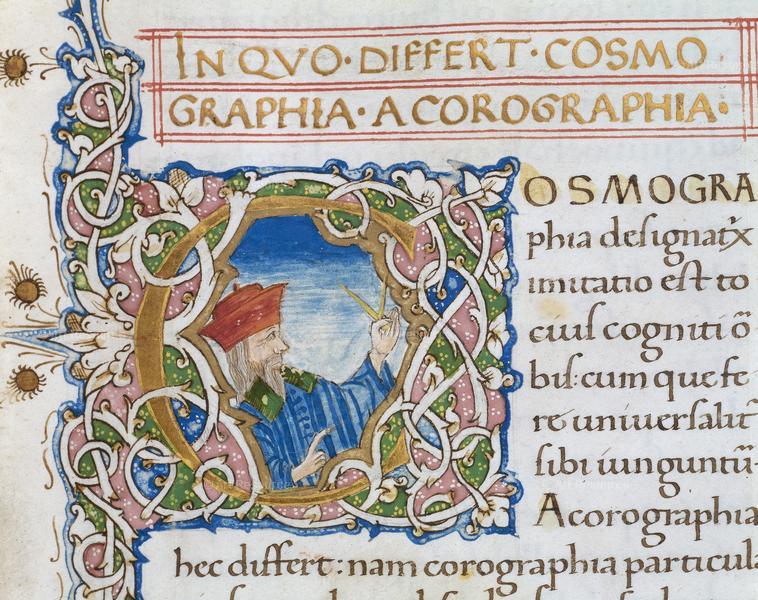 IN QVO · DIFFERT · COSMO
GRAPHIA · A COROGRAPHIA ·
COSMOGRA
phia designatꝝ
imitatio est to
cius cogniti õ
bis: cum que fe
re uniuersalit᷑
sibi iunguntũ
A corographia
hec differt: nam corographia particula